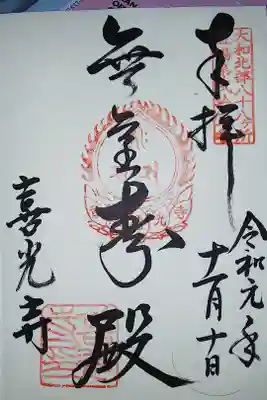 奉拝
大和北部八十八ヶ所
令和元年
十一月十日
無量寿殿
喜光寺